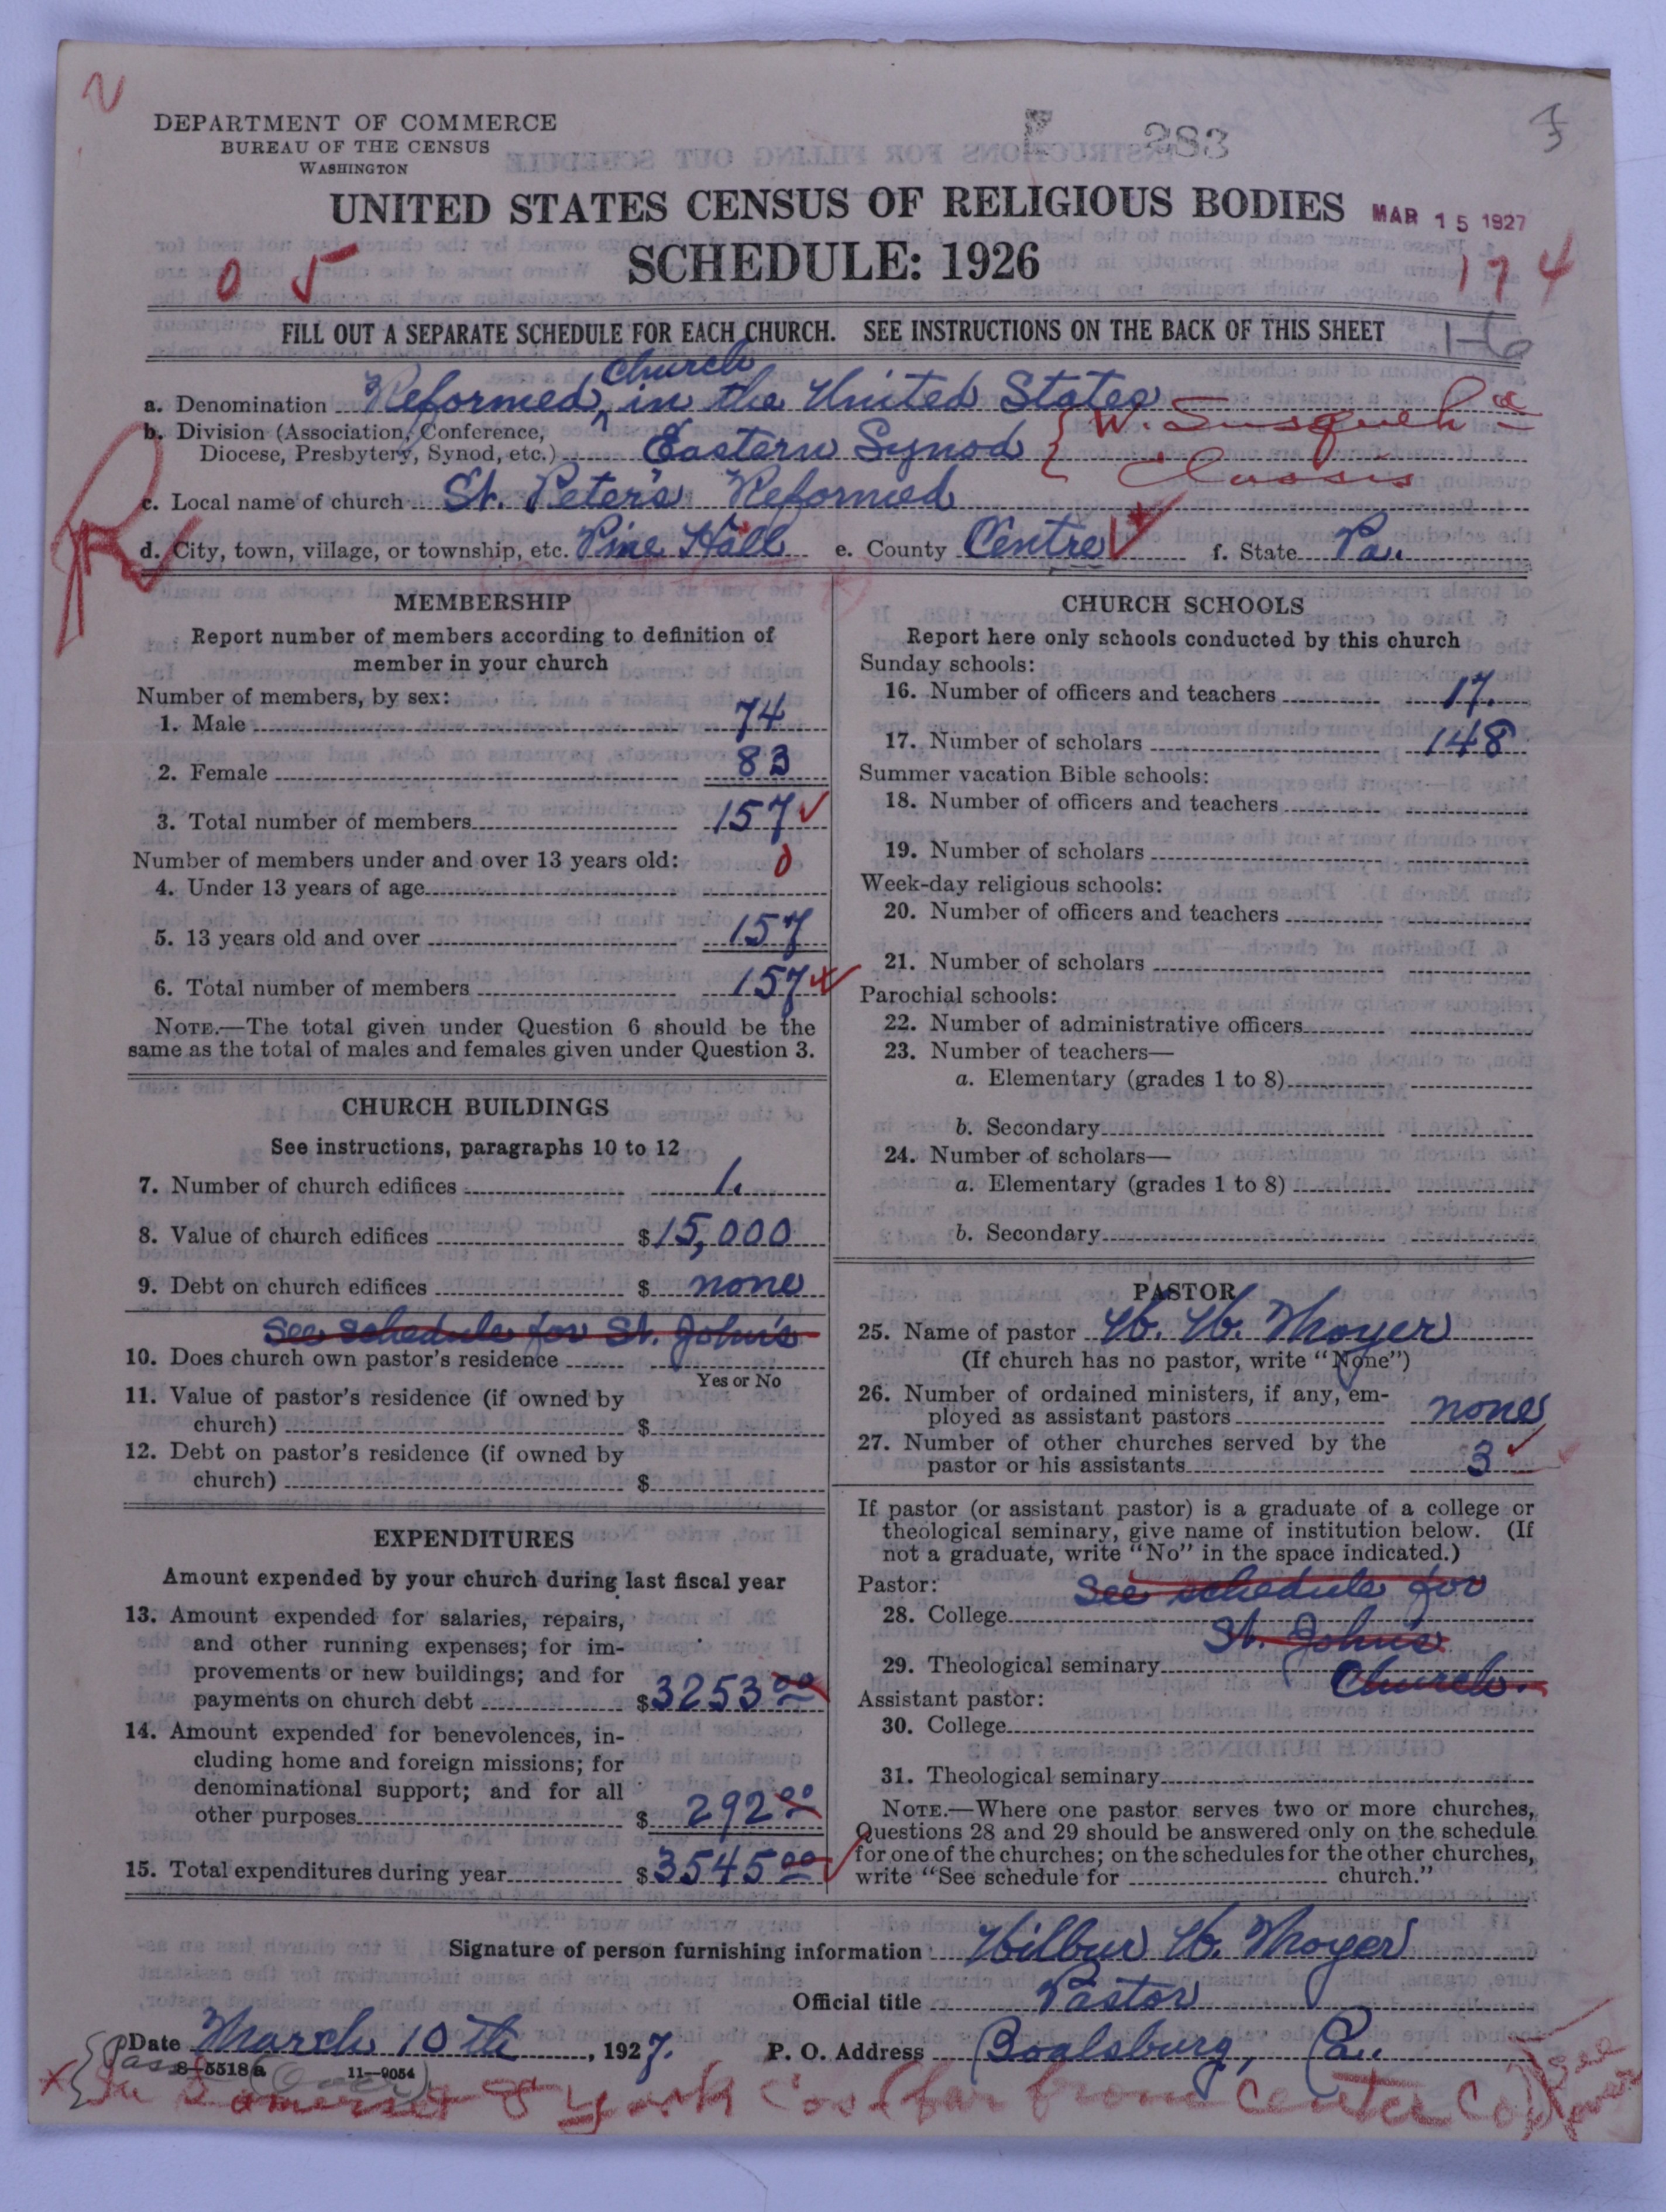 N
3
DEPARTMENT OF COMMERCE
BUREAU OF THE CENSUS
WASHINGTON
283
UNITED STATES CENSUS OF RELIGIOUS BODIES
MAR 15 1927
SCHEDULE: 1926
0 5
174
FILL OUT A SEPARATE SCHEDULE FOR EACH CHURCH. SEE INSTRUCTIONS ON THE BACK OF THIS SHEET
Church
a. Denomination Reformed ^ in the United States
b. Division (Association, Conference,
Diocese, Presbytery, Synod, etc.) Eastern Synod { W. Susqueh-a
Classis
c. Local name of church St. Peter's Reformed
d. City, town, village, or township, etc. Pine Hall e. County Centre f. State Pa.
MEMBERSHIP
Report number of members according to definition of
member in your church
Number of members, by sex:
1. Male 74
2. Female 83
3. Total number of members 157
Number of members under and over 13 years old:
4. Under 13 years of age 0
5. 13 years old and over 157
6. Total number of members 157
NOTE.—The total given under Question 6 should be the
same as the total of males and females given under Question 3.
CHURCH BUILDINGS
See instructions, paragraphs 10 to 12
7. Number of church edifices 1.
8. Value of church edifices $15,000
9. Debt on church edifices $ none
See schedule for St. John's
10. Does church own pastor's residence
Yes or No
11. Value of pastor's residence (if owned by
church) $
12. Debt on pastor's residence (if owned by
church) $
EXPENDITURES
Amount expended by your church during last fiscal year
13. Amount expended for salaries, repairs,
and other running expenses; for im-
provements or new buildings; and for
payments on church debt $3253 00
14. Amount expended for benevolences, in-
cluding home and foreign missions; for
denominational support; and for all
other purposes $ 292 00
15. Total expenditures during year $3545 00
CHURCH SCHOOLS
Report here only schools conducted by this church
Sunday schools:
16. Number of officers and teachers 17.
17. Number of scholars 148
Summer vacation Bible schools:
18. Number of officers and teachers
19. Number of scholars
Week-day religious schools:
20. Number of officers and teachers
21. Number of scholars
Parochial schools:
22. Number of administrative officers
23. Number of teachers—
a. Elementary (grades 1 to 8)
b. Secondary
24. Number of scholars—
a. Elementary (grades 1 to 8)
b. Secondary
PASTOR
25. Name of pastor W. W. Moyer
(If church has no pastor, write "None")
26. Number of ordained ministers, if any, em-
ployed as assistant pastors none
27. Number of other churches served by the
pastor or his assistants 3
If pastor (or assistant pastor) is a graduate of a college or
theological seminary, give name of institution below. (If
not a graduate, write "No" in the space indicated.)
Pastor: See schedule for
28. College
St. John's
29. Theological seminary Church.
Assistant pastor:
30. College
31. Theological seminary
NOTE.—Where one pastor serves two or more churches,
Questions 28 and 29 should be answered only on the schedule
for one of the churches; on the schedules for the other churches,
write "See schedule for church."
Signature of person furnishing information Wilbur W. Moyer
Official title Pastor
Date March 10th, 1927. P. O. Address Boalsburg, Pa.
Pass 8—5518a (Over) 11—9054
In Somerset & York Cos (far from Center Co)
See over